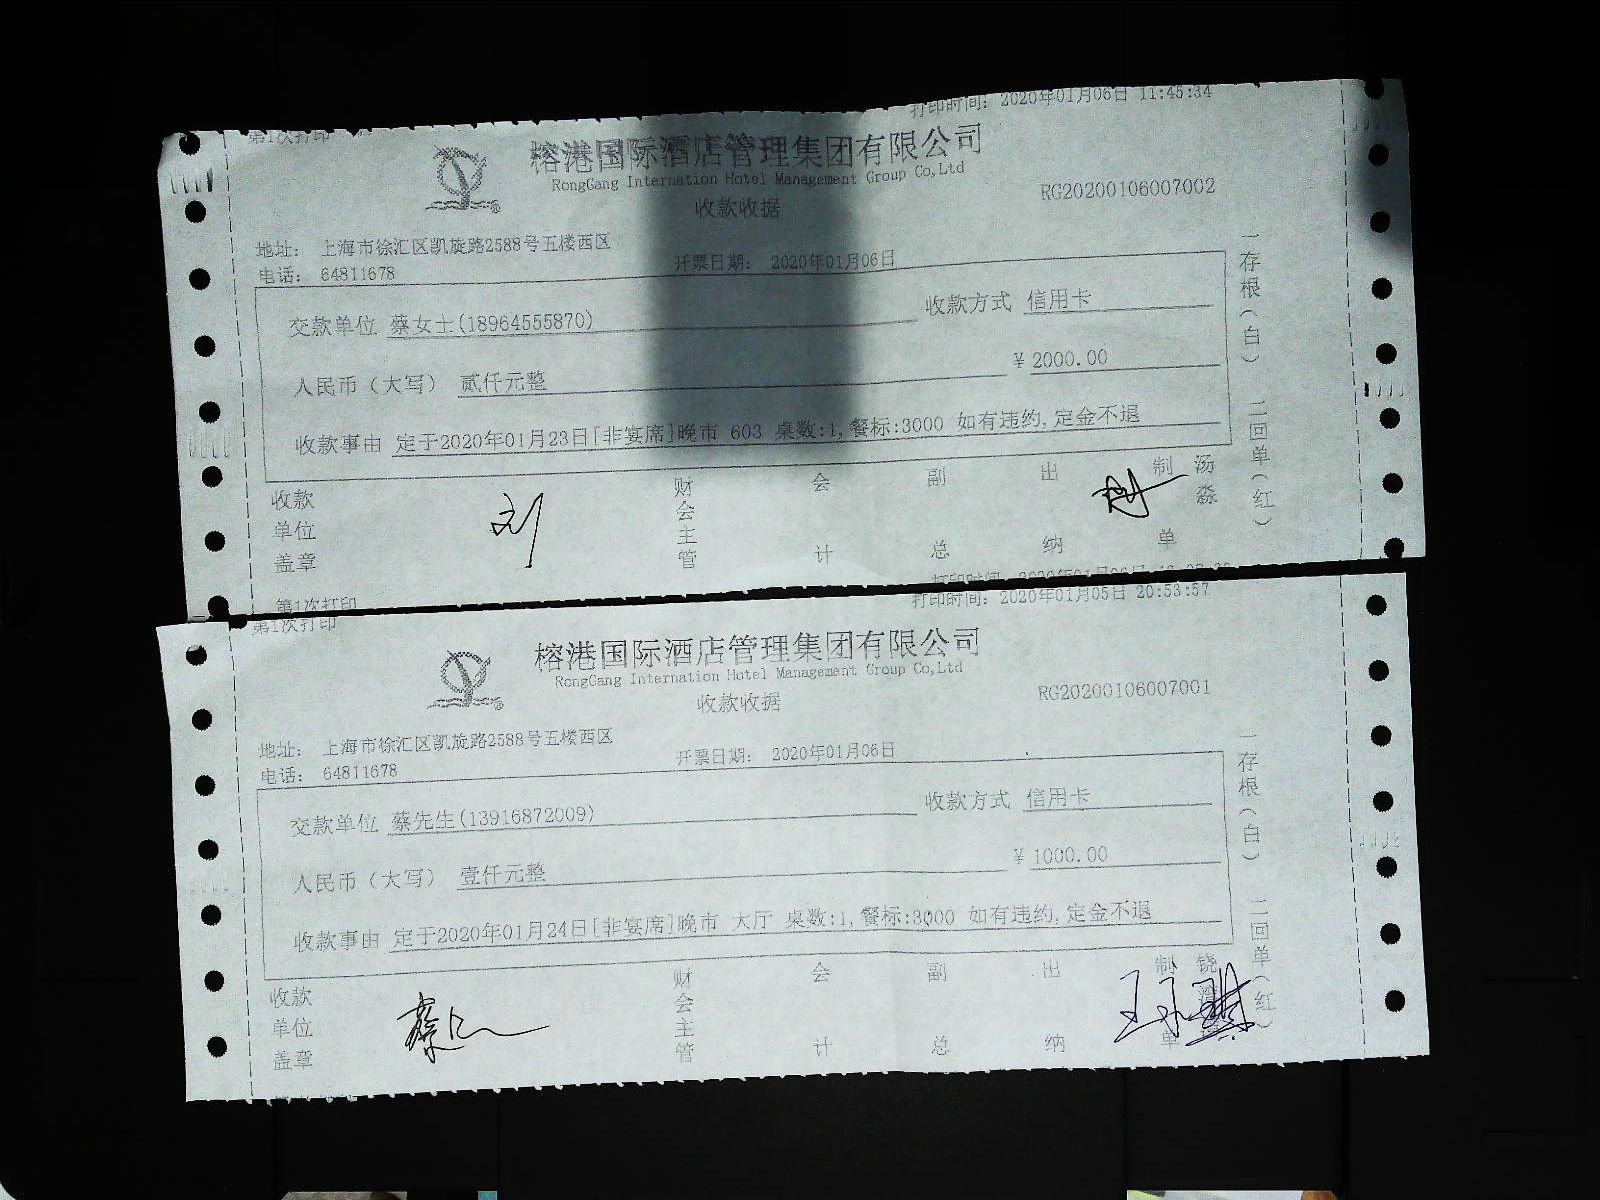 第1次打印
打印时间: 2020年01月06日 11:45:34
榕港国际酒店管理集团有限公司
RongGang Internation Hotel Management Group Co,Ltd
收款收据
RG20200106007002
地址: 上海市徐汇区凯旋路2588号五楼西区
电话: 64811678
开票日期: 2020年01月06日
交款单位 蔡女士(18964555870)
收款方式 信用卡
人民币(大写) 贰仟元整
¥ 2000.00
收款事由 定于2020年01月23日[非宴席]晚市 603 桌数:1,餐标:3000 如有违约,定金不退
一存根(白) 二回单(红)
收款单位盖章
刘
财会主管
会计
副总
出纳
制单
汤淼
第1次打印
打印时间:
第1次打印
打印时间: 2020年01月05日 20:53:57
榕港国际酒店管理集团有限公司
RongGang Internation Hotel Management Group Co,Ltd
收款收据
RG20200106007001
地址: 上海市徐汇区凯旋路2588号五楼西区
电话: 64811678
开票日期: 2020年01月06日
交款单位 蔡先生(13916872009)
收款方式 信用卡
人民币(大写) 壹仟元整
¥ 1000.00
收款事由 定于2020年01月24日[非宴席]晚市 大厅 桌数:1,餐标:3000 如有违约,定金不退
一存根(白) 二回单(红)
收款单位盖章
蔡
财会主管
会计
副总
出纳
制单
饶